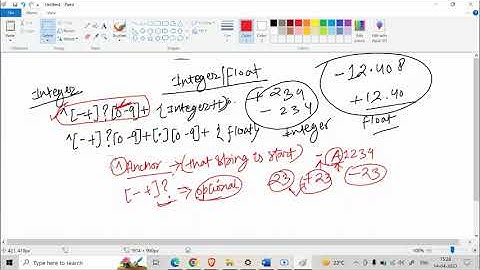 Untitled - Paint
File Home View
Integer/float
Integer
^[-+]?[0-9]+ {Integer++}.
+ 234
- 234
integer
-12.408
+12.40
float
^[-+]?[0-9]+[.][0-9]+ {float}
^ Anchor → (that string is start)
[-+]? ⇒ optional
23 +23 -23
A 2234
421, 410px
100%
Type here to search
22°C
ENG
15:28
14-04-2023